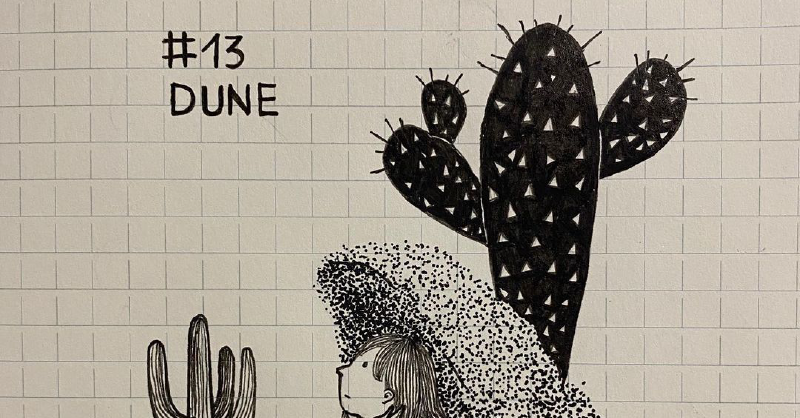 #13
DUNE